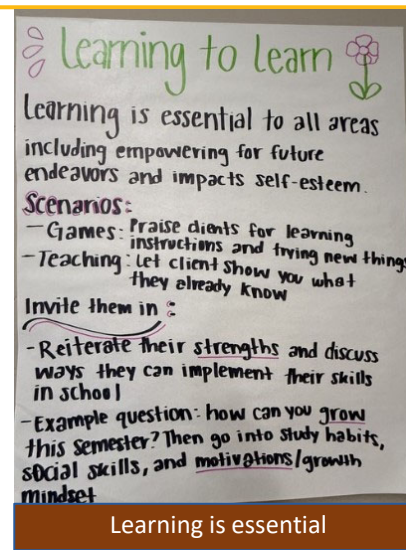 Learning to learn
Learning is essential to all areas
including empowering for future
endeavors and impacts self-esteem.
Scenarios:
- Games: Praise clients for learning
instructions and trying new things
- Teaching: let client show you what
they already know
Invite them in:
- Reiterate their strengths and discuss
ways they can implement their skills
in school
- Example question: how can you grow
this semester? Then go into study habits,
social skills, and motivations/growth
mindset
Learning is essential